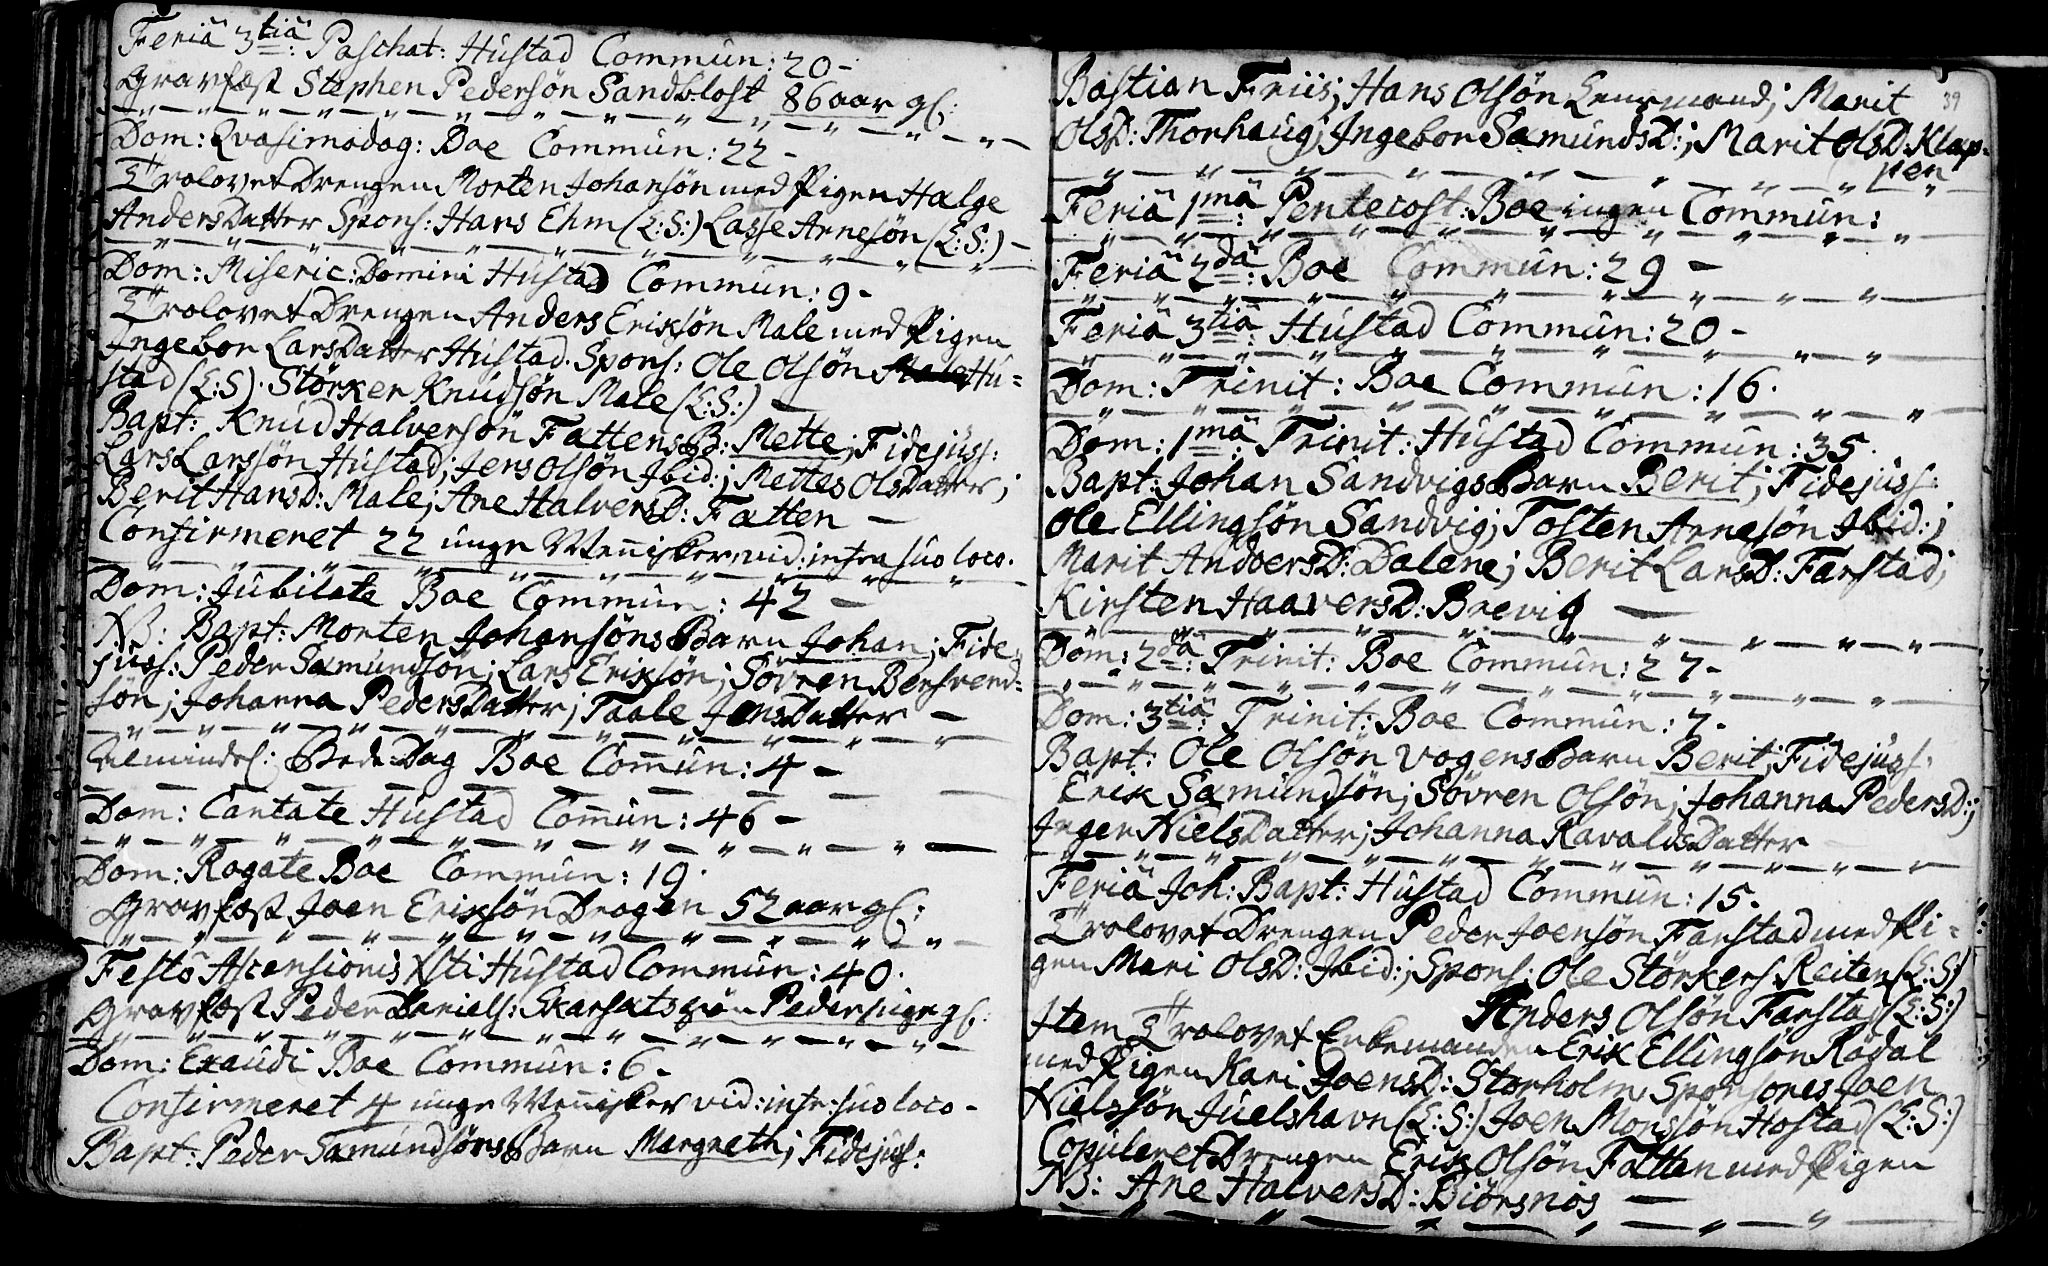 Feriâ 3tiâ: Paschat: Hustad Commun: 20 –
Gravfæst Stephen Pedersön Sandblost 86 aar gl:
Dom: Qvasimodog: Boe Commun: 22 –
Trolovet Drengen Morten Johansön med Pigen Halge
Anders Datter Spons: Hans Ehm (L:S:) Lasse Arnesön (L:S:) –
Dom: Miseric: Domini Hustad Commun: 9 –
Trolovet Drengen Anders Eriksön Male med Pigen
Ingebor Lars Datter Hustad. Spons: Ole Olsön Male Hu=
stad (L:S). Störker Knudsön Male (L:S:) –
Bapt: Knud Halversön Fattens B: Mette; Fidejuss:
Lars Larssön Hustad; Jens Olsön Ibid:; Mettes Ols Datter;
Berit HansD: Male; Ane HalversD: Fatten –
Confirmeret 22 unge Mennisker vid: infra suo loco.
Dom: Jubilate Boe Commun: 42 –
NB: Bapt: Morten Johansöns Barn Johan; Fide=
juss: Peder Samundsön; Lars Eriksön; Sövren Bersvend=
sön; Johanna Peders Datter; Taale Jens Datter –
Almindel: Bede-Dag Boe Com̄un: 4 –
Dom: Cantate Hustad Com̄un: 46 –
Dom: Rogate Boe Commun: 19.
Gravfæst Joen Eriksön Dragen 52 aar gl:
Festô Ascensionis Xsti Hustad Commun: 40.
Gravfæst Peder Daniels: Skarsæts sön Peder uger gl:
Dom: Exaudi Boe Commun: 6 –
Confirmeret 4 unge Mennisker vid: infr: suo loco –
Bapt: Peder Samundsöns Barn Margreth; Fidejus:
39
Bastian Friis; Hans Olsön Lensmand; Marit
OlsD: Thorhaug; Ingebor SamundsD:; Marit OlsD: Klap=
pen
Feriâ 1mâ: Pentecost: Boe ingen Commun:
Feriâ 2dâ: Boe Commun: 29 –
Feriâ 3tiâ: Hustad Commun: 20 –
Dom: Trinit: Boe Commun: 16.
Dom: 1mâ: Trinit: Hustad Commun: 35.
Bapt: Johan Sandvigs Barn Berit; Fidejuss:
Ole Ellingsön Sandvig; Tosten Arnesön Ibid:;
Marit AndversD: Dalene; Berit LarsD: Farstad;
Kirsten HaaversD: Brevig –
Dom: 2dâ: Trinit: Boe Commun: 27 –
Dom: 3tiâ: Trinit: Boe Commun: 7 –
Bapt: Ole Olsön Vogens Barn Berit; Fidejuss:
Erik Samundsön; Sövren Olsön; Johanna PedersD:;
Inger Niels Datter; Johanna Ravalds Datter
Feriâ Joh: Bapt: Hustad Commun: 15.
Trolovet Drengen Peder Joensön Farstad med Pi=
gen Mari OlsD: Ibid:; Spons: Ole Störkers: Reiten (L:S:)
Anders Olsön Farstad (L:S:)
Item Trolovet Enkemanden Erik Ellingsön Rödal
med Pigen Kari JoensD: Storholm Sponsores Joen
Nielssön Juelshavn (L:S:) Joen Monssön Hostad (L:S:)
Copuleret Drengen Erik Olsön Fatten med Pigen
NB: Ane HalversD: Biörsnös –